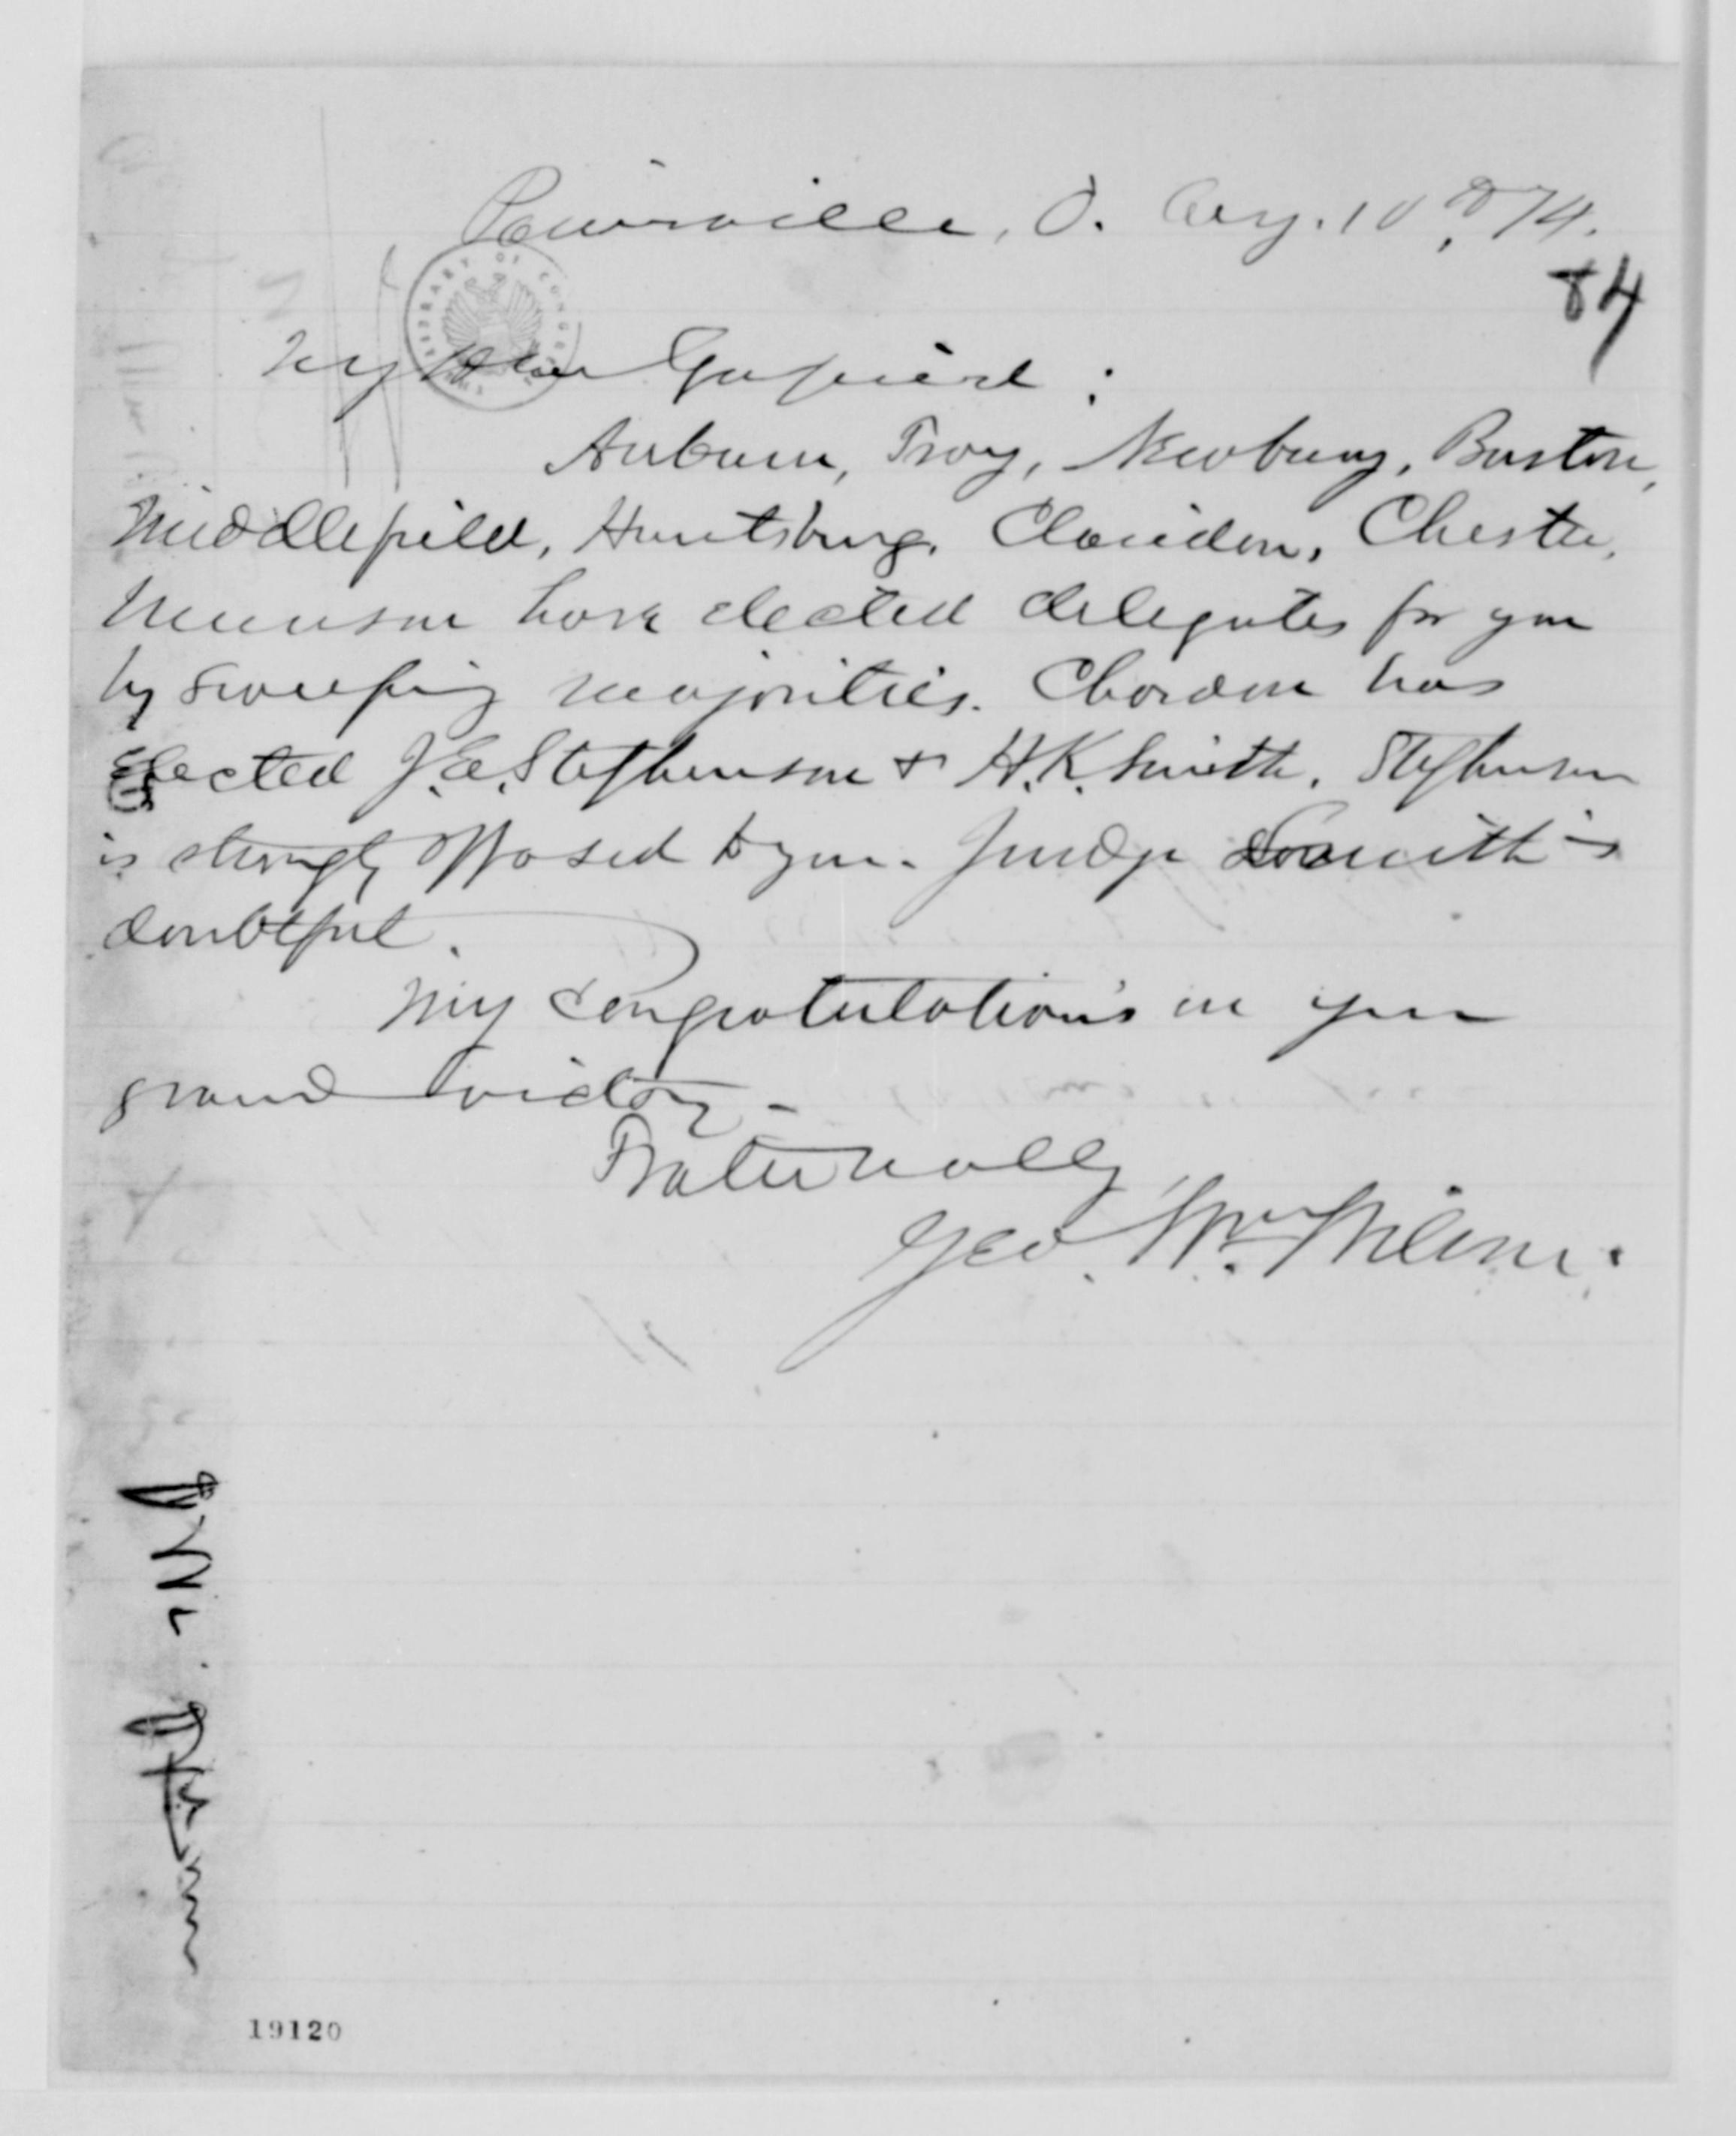 Painesville, O. Aug. 10, 874.
84
My Dear Garfield:
Auburn, Troy, Newbury, Burton,
Middlefield, Huntsburg, Claridon, Chester,
Munson have elected delegates for you
by sweeping majorities. Chardon has
elected J.E. Stephenson & H.K. Smith. Stephenson
is strongly opposed to you. Judge Smith is
doubtful.
My congratulations on your
grand victory.
Fraternally,
Geo. Wm. Wilson.
19120
LIBRARY OF CONGRESS